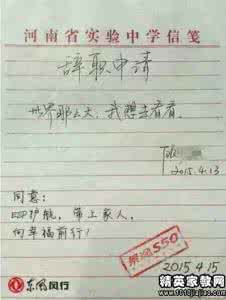 河南省实验中学信笺
辞职申请
世界那么大，我想去看看。
2015.4.13
同意：
ESP护航，带上家人，
向幸福前行！
景逸S50
2015.4.15
东风风行
精英家教网
www.1010jiajiao.com